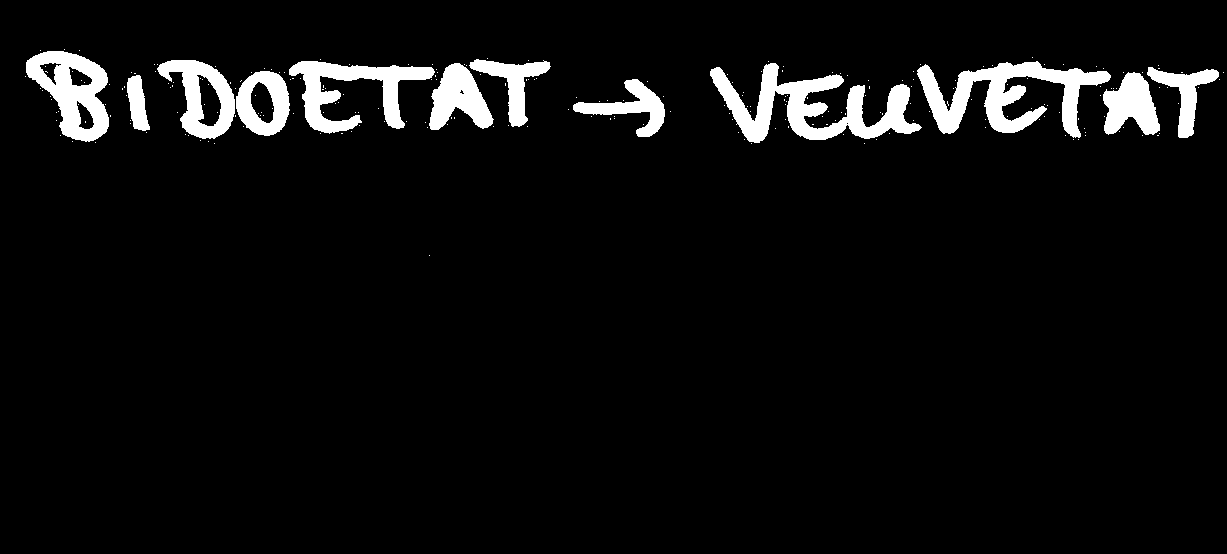 BIDOETAT → VEUVETAT